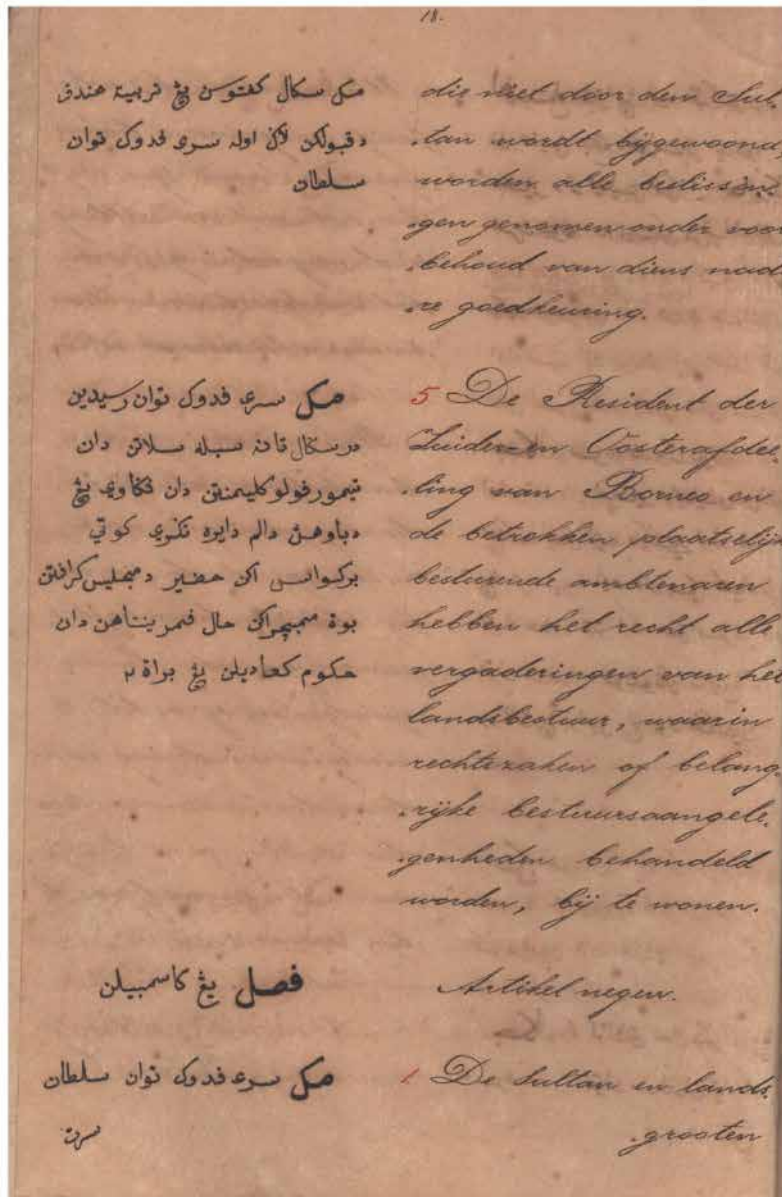 18.
die niet door den Sul-
tan wordt bijgewoond
worden alle beslissin-
gen genomen onder voor
behoud van diens nade
re goedkeuring.
5 De Resident der
Zuider en Oosterafdee-
ling van Borneo en
de betrokken plaatselijk
besturende ambtenaren
hebben het recht alle
vergaderingen van het
landsbestuur, waarin
rechtzaken of belang-
rijke bestuursaangele-
genheden behandeld
worden, bij te wonen.
Artikel negen.
1 De Sultan en lands-
grooten
مک سکال کفتوسن يڠ تربيت هندق
دقبولکن اوله سري فدوک توان
سلطان
مک سري فدوک توان رسيدين
در سکال تانه سبله سلاتن دان
تيمور فولو کليمنتن دان فکاوي يڠ
دباوهڽ دالم دايره نکري کوتي
برکواس اکن حضير دمجليس کرافتن
بوة ممبچراکن حال فمرينتاهن دان
حکوم کعاديلن يڠ براة٢
فصل يڠ کاسمبيلن
مک سري فدوک توان سلطان
سرت